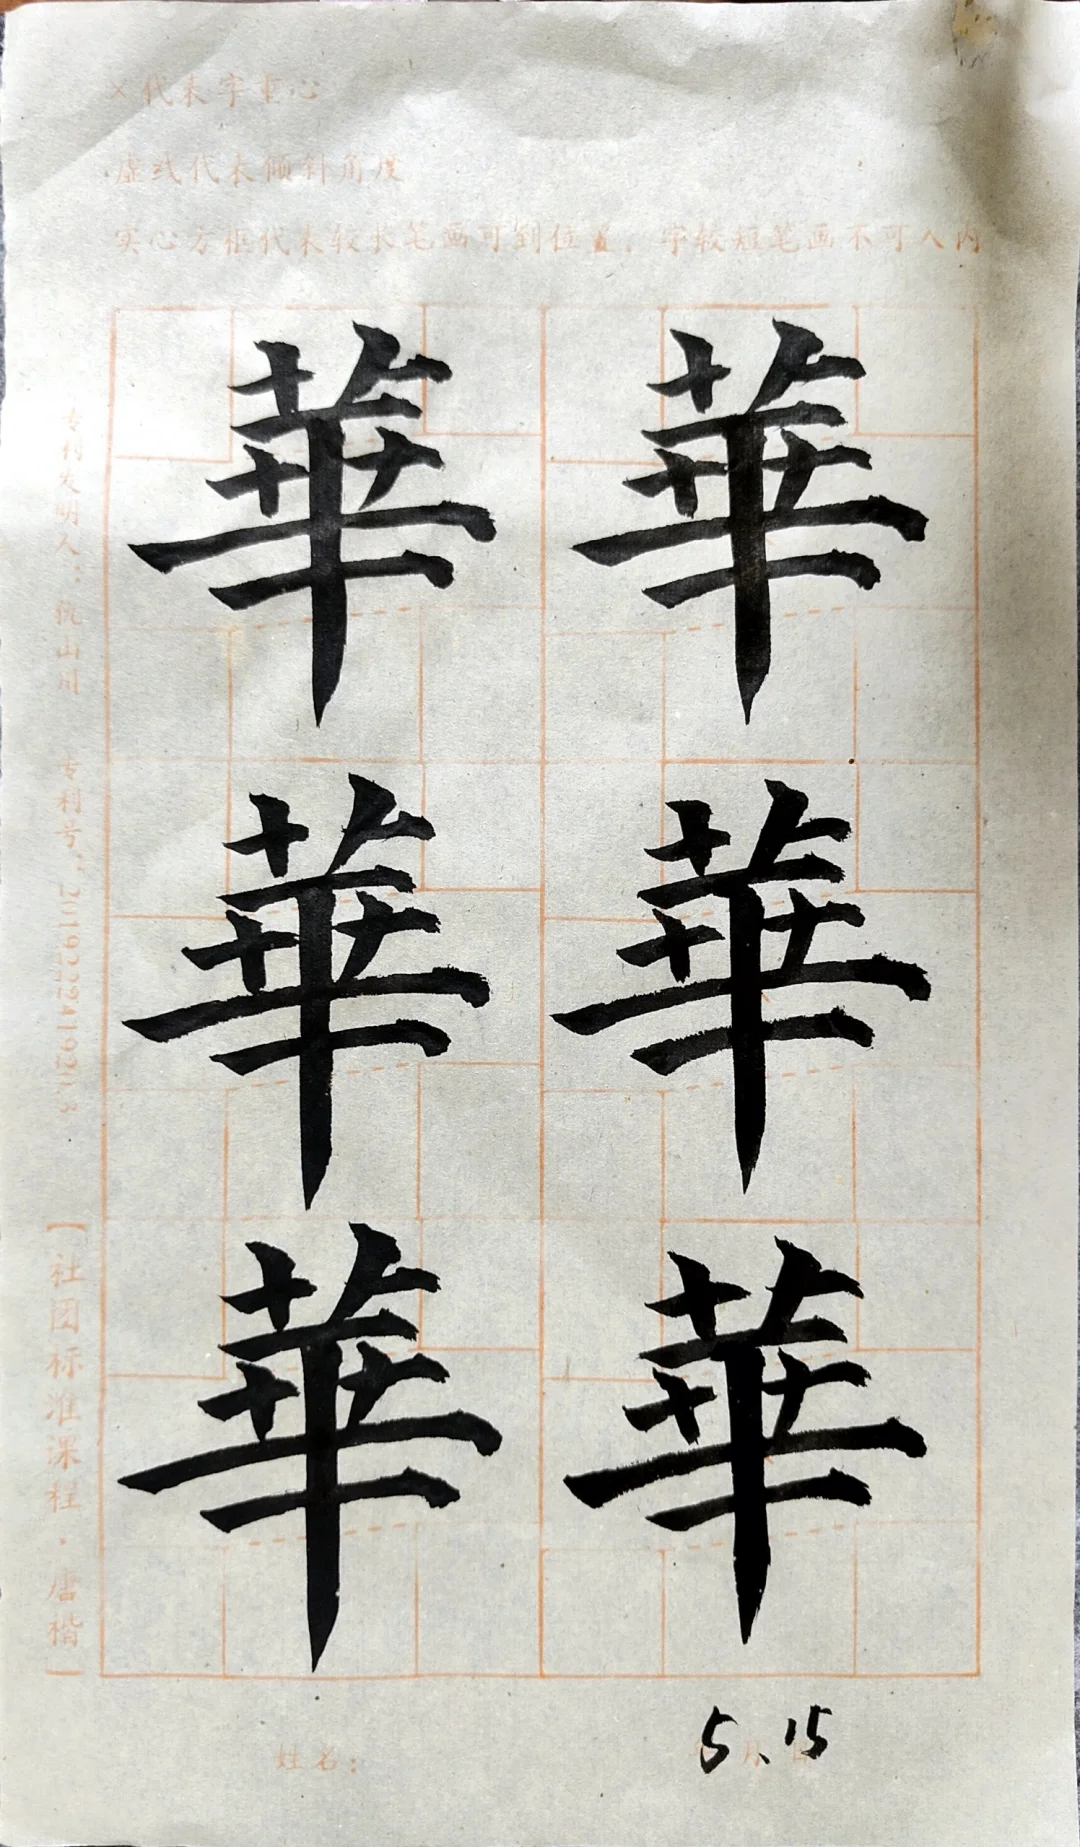 ×代表字重心
虚线代表倾斜角度
实心方框代表较长笔画可到位置，字较短笔画不可入内
華 華
華 華
華 華
专利发明人：仇山川 专利号：
【社团标准课程·唐楷】
姓名：
5、15